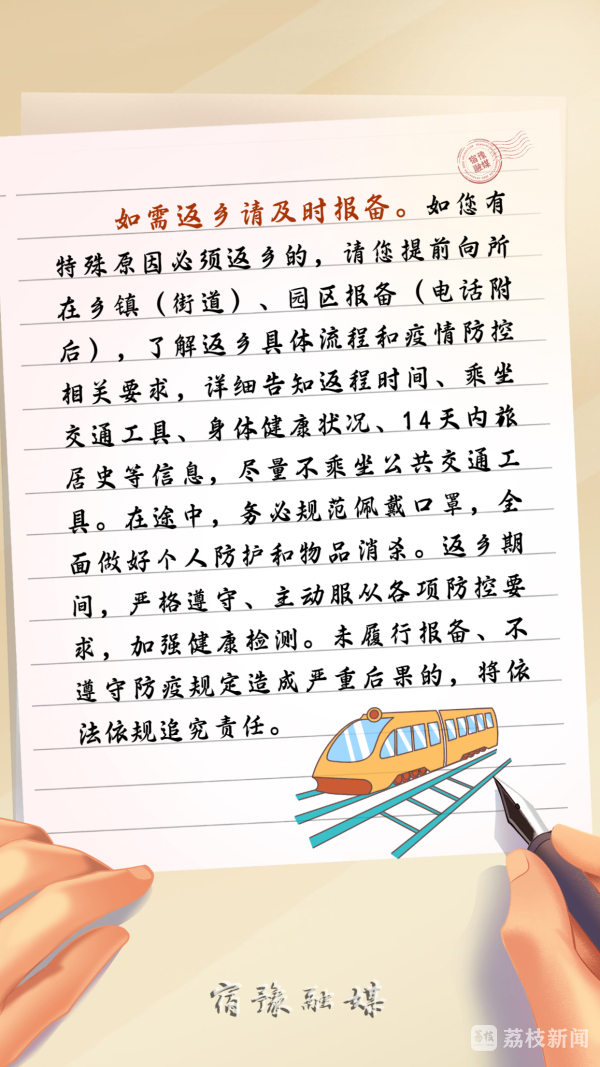 宿豫
融媒
如需返乡请及时报备。如您有
特殊原因必须返乡的，请您提前向所
在乡镇（街道）、园区报备（电话附
后），了解返乡具体流程和疫情防控
相关要求，详细告知返程时间、乘坐
交通工具、身体健康状况、14天内旅
居史等信息，尽量不乘坐公共交通工
具。在途中，务必规范佩戴口罩，全
面做好个人防护和物品消杀。返乡期
间，严格遵守、主动服从各项防控要
求，加强健康检测。未履行报备、不
遵守防疫规定造成严重后果的，将依
法依规追究责任。
宿豫融媒
荔枝 荔枝新闻